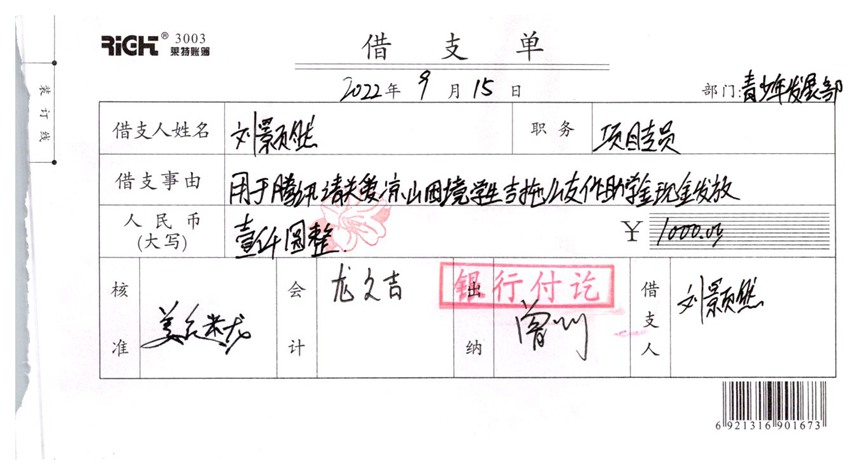 RiGHT® 3003
莱特账簿
借支单
2022年9月15日
部门:青少年发展部
装订线
借支人姓名 刘颢然 职务 项目专员
借支事由 用于腾讯请关爱凉山困境学生吉拖么友作助学金现金发放
人民币(大写) 壹仟圆整. ¥ 1000.00
核准 会计 龙久吉 出纳 曾 借支人 刘颢然
银行付讫
6 921316 901673